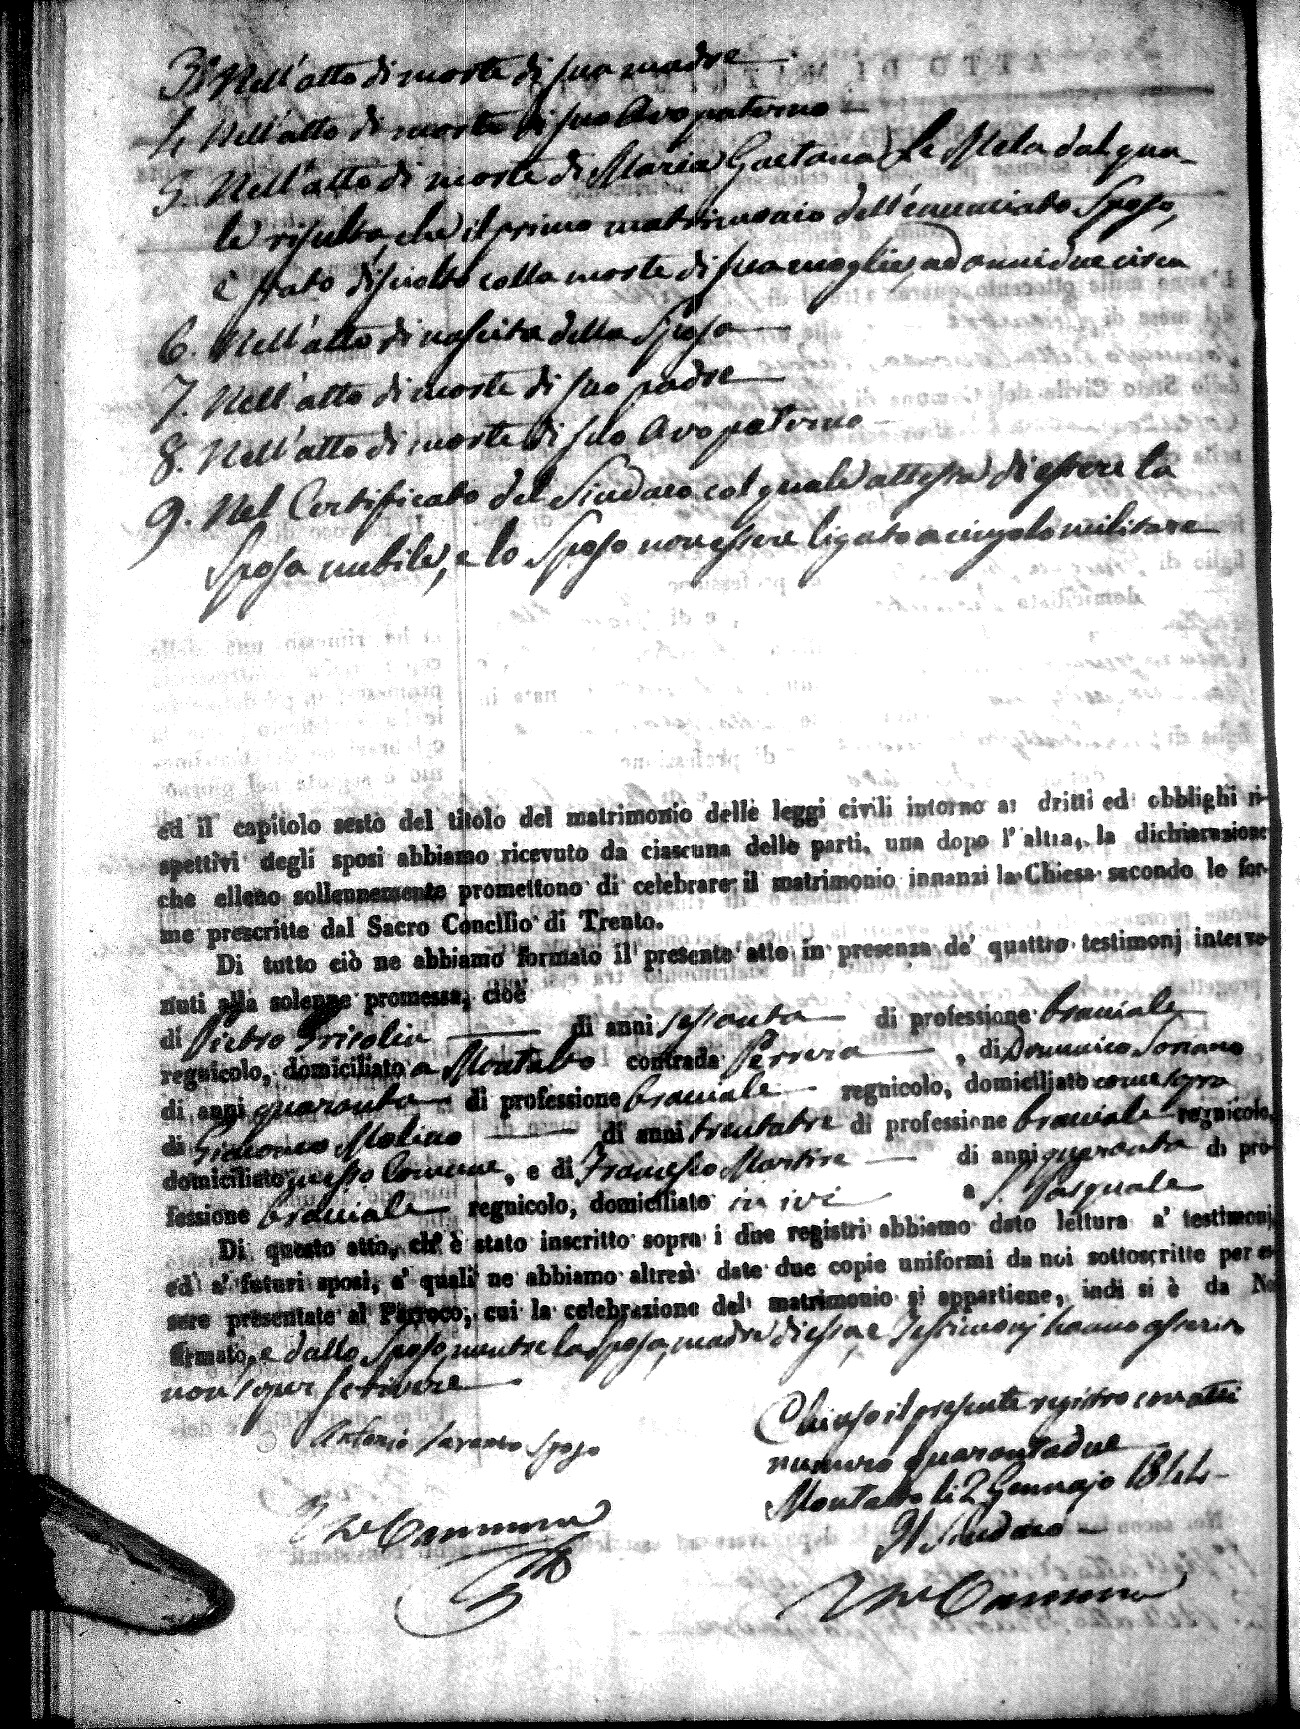 3.° Nell'atto di morte di sua madre
4. Nell'atto di morte di suo Avo paterno
5. Nell'atto di morte di Maria Gaetana La Mela dal qua-
le risulta, che il primo matrimonio dell'enunciato Sposo,
è stato disciolto colla morte di sua moglie ad anni due circa
6. Nell'atto di nascita della Sposa
7. Nell'atto di morte di suo padre
8. Nell'atto di morte di suo Avo paterno
9. Nel Certificato del Sindaco col quale attesta di essere la
Sposa nubile, e lo Sposo non essere ligato a cingolo militare
ed il capitolo sesto del titolo del matrimonio delle leggi civili intorno a: dritti ed obblighi ri-
spettivi degli sposi abbiamo ricevuto da ciascuna delle parti, una dopo l'altra, la dichiarazione
che elleno sollennemente promettono di celebrare il matrimonio innanzi la Chiesa secondo le for-
me prescritte dal Sacro Concilio di Trento.
Di tutto ciò ne abbiamo formato il presente atto in presenza de' quattro testimonj interve-
nuti alla solenne promessa, cioè
di Pietro Grisolia di anni sessanta di professione bracciale
regnicolo, domiciliato a Montalto contrada Perrera, di Domenico Soriano
di anni quaranta di professione bracciale regnicolo, domiciliato come sopra
di Giacomo Molino di anni trentatre di professione bracciale regnicolo,
domiciliato in esso Comune, e di Francesco Martire di anni quaranta di pro-
fessione bracciale regnicolo, domiciliato in ivi a S. Pasquale
Di questo atto, ch' è stato inscritto sopra i due registri abbiamo dato lettura a' testimonj,
ed a' futuri sposi, a' quali ne abbiamo altresì date due copie uniformi da noi sottoscritte per es-
sere presentate al Parroco, cui la celebrazione del matrimonio si appartiene, indi si è da Noi
firmato, e dallo Sposo, mentre la sposa, madre di essa, e Testimonj hanno asserito
non saper scrivere
Antonio sposo
Chiuso il presente registro con atti
numero quarantadue
Montalto li 2 Gennajo 1844
Il Sindaco